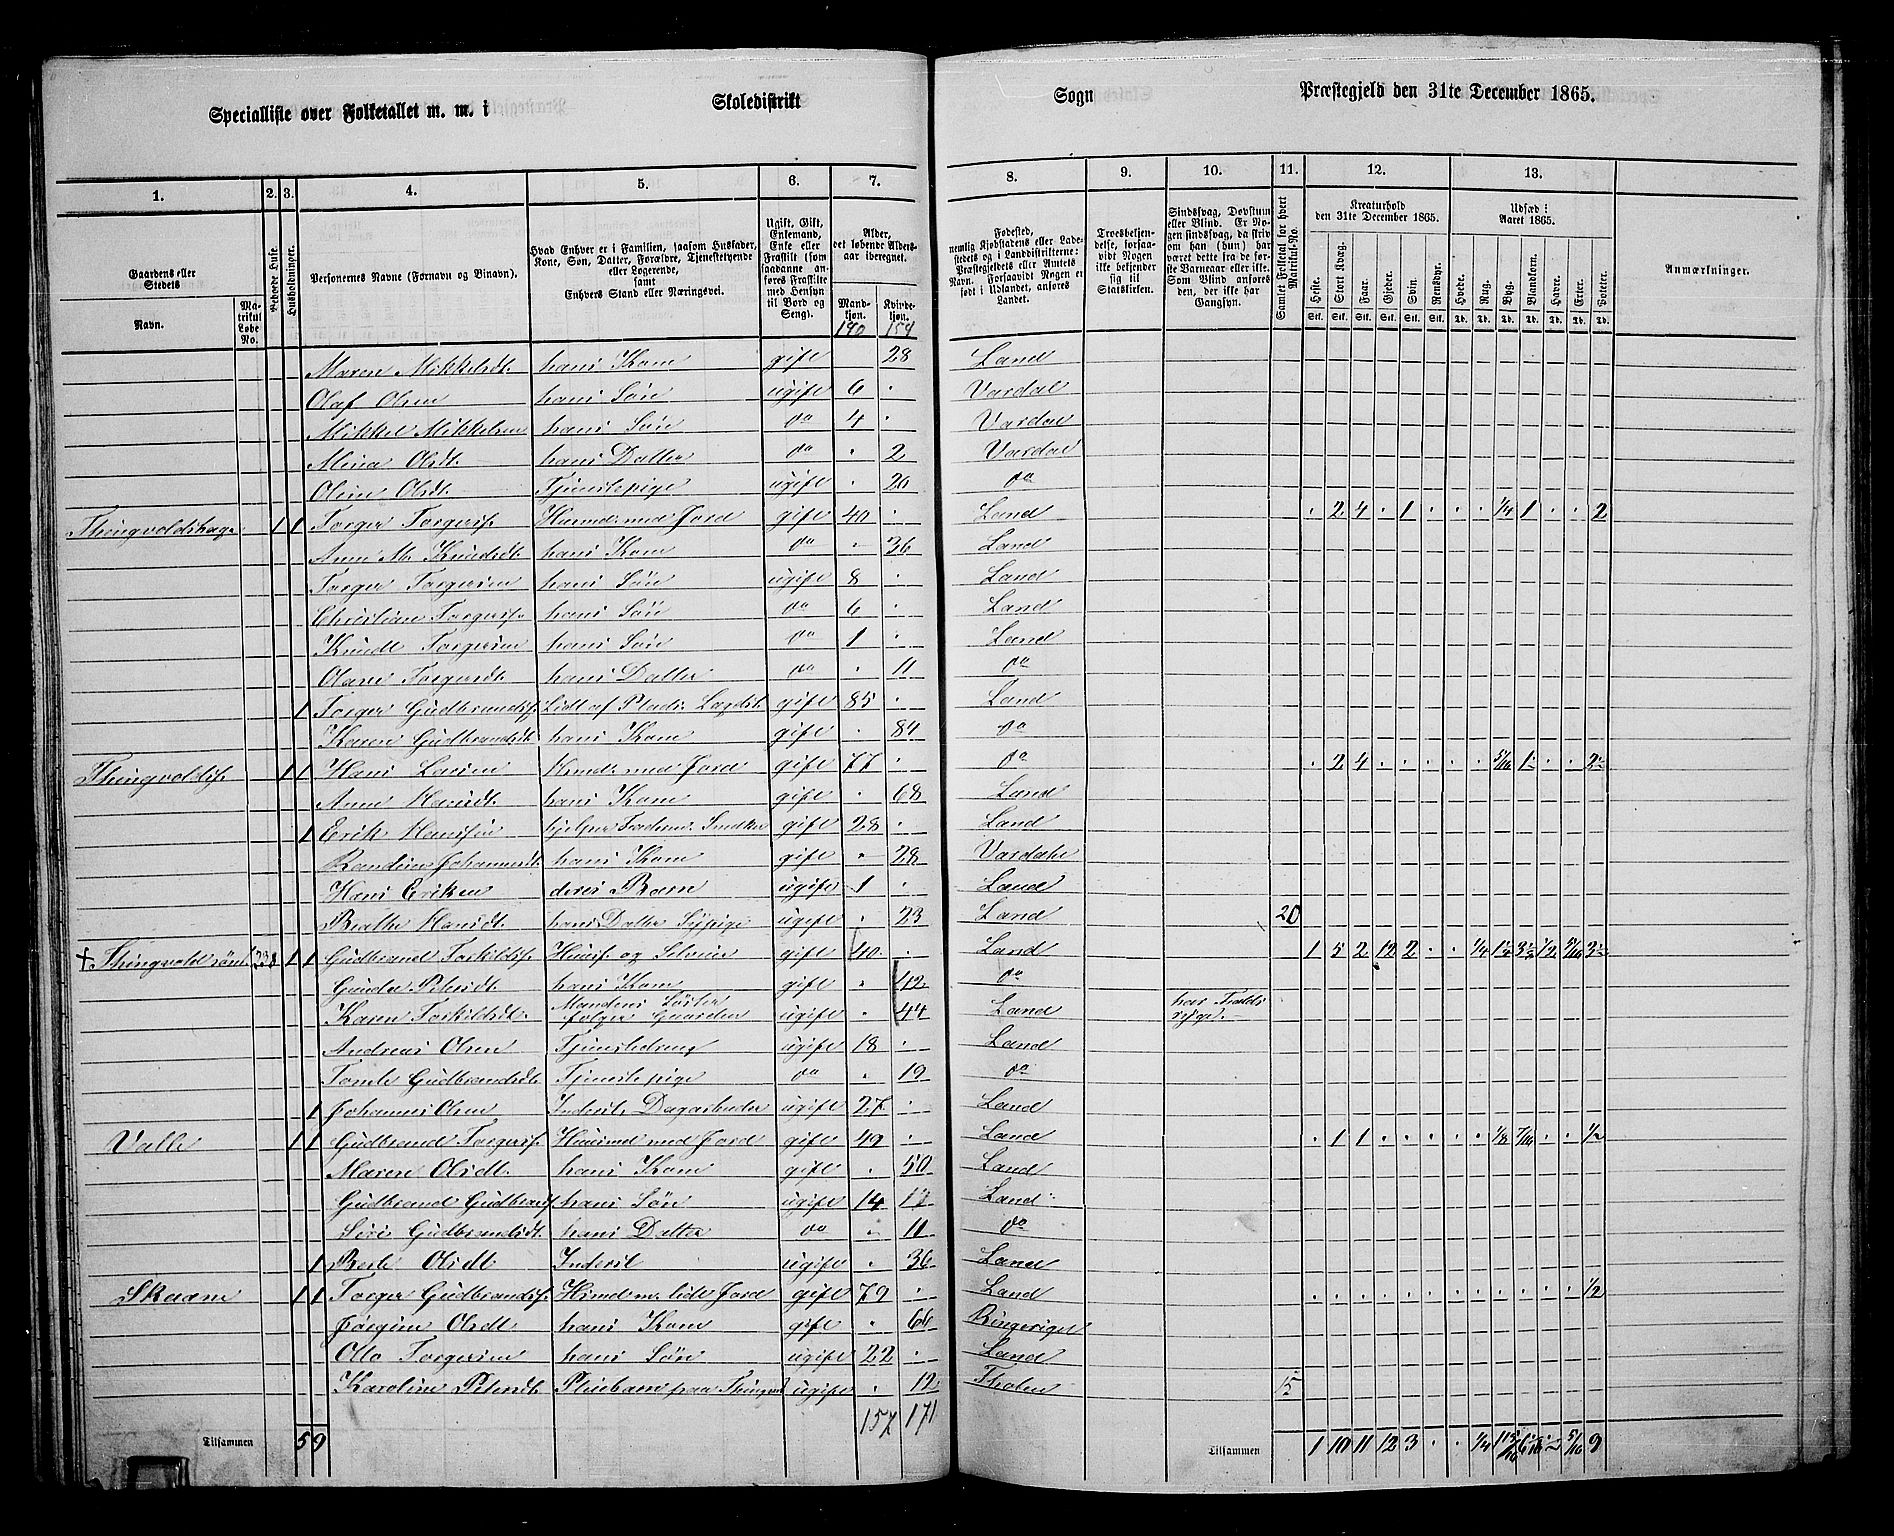 Specialliste over Folketallet m. m. i Skoledistrikt Sogn Præstegjeld den 31te December 1865.
1. 2. 3. 4. 5. 6. 7. 8. 9. 10. 11. 12. 13.
Gaardens eller Stedets
Navn.
Matrikul Løbe No.
Beboede Huse.
Husholdninger.
Personernes Navne (Fornavn og Binavn).
Hvad Enhver er i Familien, saasom Husfader, Kone, Søn, Datter, Forældre, Tjenestetyende eller Logerende, samt Enhvers Stand eller Næringsvei.
Ugift, Gift, Enkemand, Enke eller Fraskilt (som saadanne anføres Fraskilte med Hensyn til Bord og Seng).
Alder, det løbende Aldersaar iberegnet.
Mandkjøn. Kvindekjøn.
Fødested, nemlig Kjøbstadens eller Ladestedets og i Landdistrikterne: Præstegjeldets eller Amtets Navn. Forsaavidt Nogen er født i Udlandet, anføres Landet.
Troesbekjendelse, forsaavidt Nogen ikke bekjender sig til Statskirken.
Sindssvag, Døvstum eller Blind. Er Nogen sindssvag, da skriv om han (hun) har været dette fra de første Barneaar eller ikke. Som Blind anføres den, der ikke har Gangsyn.
Samlet Folketal for hvert Matrikul-No.
Kreaturhold den 31te December 1865.
Heste. Stort Kvæg. Faar. Gjeder. Svin. Rensdyr.
Udsæd i Aaret 1865.
Hvede. Rug. Byg. Blandkorn. Havre. Erter. Poteter.
Stk. Stk. Stk. Stk. Stk. Stk. Td. Td. Td. Td. Td. Td. Td.
Anmærkninger.
Maren Mikkelsdt. hans Kone gift 28 Land
Olaf Olsen hans Søn ugift 6 Vardal
Mikkel Mikkelsen hans Søn do 4 Vardal
Mina Olsdt. hans Datter do 2 Vardal
Oline Olsdt. Tjenestepige ugift 20 do
Thingvoldshage 1 1 Torger Torgers. Huusmd. med Jord gift 40 Land 2 4 1 1/4 1 2
Anne M. Knudsdt. hans Kone do 36 Land
Torger Torgersen hans Søn ugift 8 Land
Christian Torgers. hans Søn do 6 Land
Knudt Torgersen hans Søn do 1 Land
Olava Torgersdt. hans Datter do 11 do
1 Torger Gudbrands. Lidt af Plads. Lægdsl. gift 85 Land
Karen Gudbrandsdt. hans Kone gift 84 do
Thingvoldse. 1 1 Hans Larsen Husmd. med Jord gift 77 do 2 4 5/16 1 2½
Anne Hansdt. hans Kone gift 68 Land
1 Erik Hansen hjelper Faderen. Snedker gift 28 Land
Randine Johannesdt. hans Kone gift 28 Vardahl
Hans Eriksen deres Barn ugift 1 Land
Beathe Hansdt. hans Datter Sypige ugift 23 Land 20
+ Thingvold søndre 238 1 1 Gudbrand Torkilds. Huusf. og Selveier gift 40 Land 1 5 2 12 2 1/4 1½ 3½ 1/2 5/16 3½
Gunder Pedersdt. hans Kone gift 42 do
Karen Torkildsdt. Mandens Søster følger Gaarden ugift 44 Land har
Andreas Olsen Tjenestedreng ugift 18 Land
Tomle Gudbrandsdt. Tjenestepige do 19 do
1 Johannes Olsen Inderst. Dagarbeider ugift 27 Land
Valle 1 1 Gudbrand Torgers. Huusmd. med Jord gift 49 Land 1 1 1/8 7/16 1/2
Maren Olsdt. hans Kone gift 50 Land
Gudbrand Gudbrands. hans Søn ugift 14 Land
Siri Gudbrandsdt. hans Datter do 11 do
1 Berte Olsdt. Inderst ugift 36 Land
Skaane 1 1 Torger Gudbrands. Husmd. m. lidt Jord gift 79 Land 1/2
Jørgine Olsdt. hans Kone gift 66 Ringeriget
Otto Torgersen hans Søn ugift 22 Land
Karoline Pedersdt. Pleiebarn fra ugift 12 Thoten 15
157 171
Tilsammen 5 9 Tilsammen 1 10 11 12 3 1/4 5/16 9